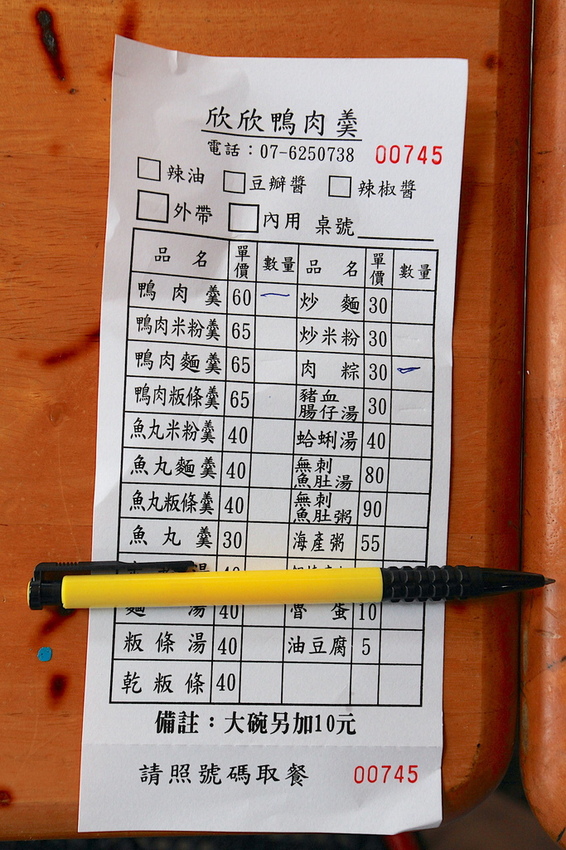 欣欣鴨肉羹
電話：07-6250738 00745
辣油 豆瓣醬 辣椒醬
外帶 內用 桌號
品名 單價 數量 品名 單價 數量
鴨肉羹 60 一 炒麵 30
鴨肉米粉羹 65 炒米粉 30
鴨肉麵羹 65 肉粽 30 一
鴨肉粄條羹 65 豬血腸仔湯 30
魚丸米粉羹 40 蛤蜊湯 40
魚丸麵羹 40 無刺魚肚湯 80
魚丸粄條羹 40 無刺魚肚粥 90
魚丸羹 30 海產粥 55
湯 40
麵湯 40 魯蛋 10
粄條湯 40 油豆腐 5
乾粄條 40
備註：大碗另加10元
請照號碼取餐 00745